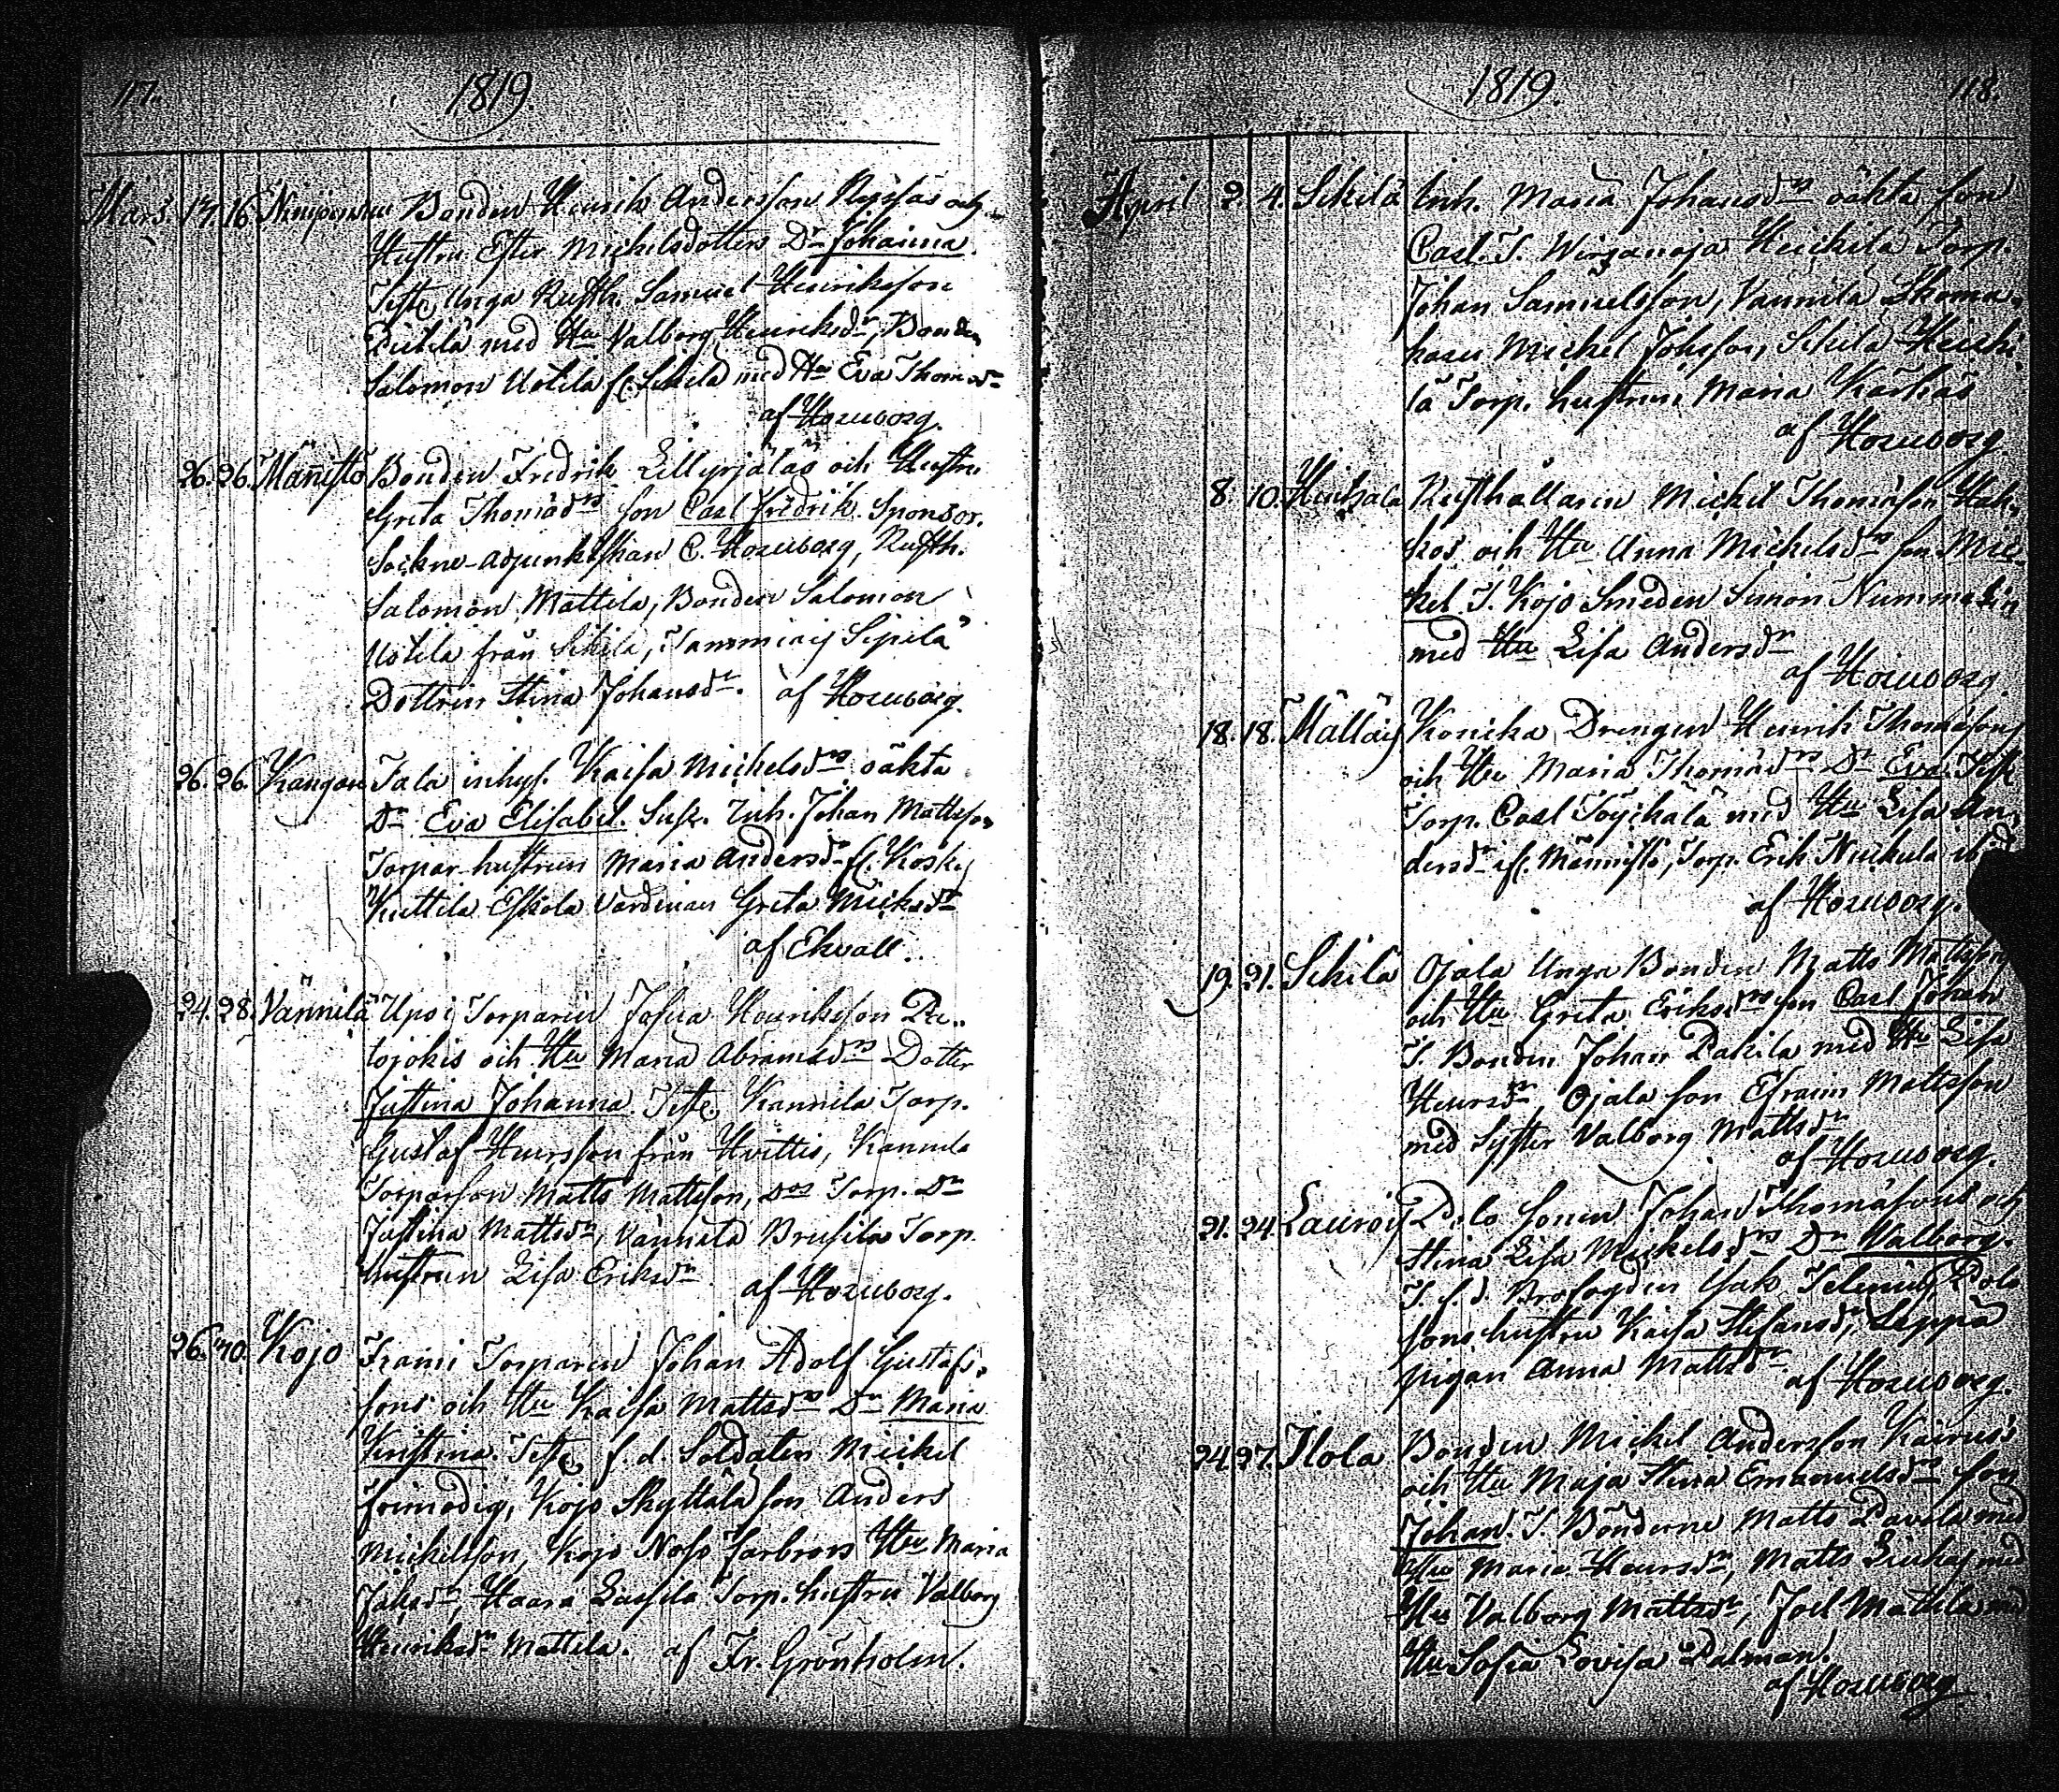 117. 1819
Mars 13. 16. Bonden Henrik Andersson och
Hustru Ester Michelsdotters Dr Johanna.
Test. Unga Rusth. Samuel Henriksson
med Hu Valborg Henriksdr, Bonden
Salomon Uotila fr. Sikilä med Hu Eva Thomadr
af Horuborg.
26. 26. Männistö Bonden Fredrik och Hustru
Greta Thomädrs son Carl Fredrik. Sponsor.
Sockne-adjunkten C. Horuborg, Rusth.
Salomon Mattila, Bonden Salomon
Uotila från Sikilä, Sepilä
Dottren Stina Johansdr. af Horuborg.
26. 26. Kangars Tala inhys. Kaisa Michelsdrs oäkta
Dr Eva Elisabet. Susc. Inh. Johan Mattsson
Torpar-hustrun Maria Andersdr fr. Koski
Kuttila Eskola Värdinan Greta Micksdr
af Ekvall.
24. 28. Vännilä Torparen Josua Henriksson
och Hu Maria Abramsdrs Dotter
Justina Johanna. Test. Kannila Torp.
Gustaf Henrsson från Hvittis, Kannila
Torparson Matts Mattsson, Dos Torp. Dr
Justina Mattsdr, Vännilä Brusila Torp.
hustrun Lisa Eriksdr af Horuborg.
26. 30. Kojo Frami Torparen Johan Adolf Gustafs-
sons och Hu Kaisa Mattsdrs Dr Maria
Kristina. Test. f. d. Soldaten Mickel
Frimodig, Kojo Skyttälä son Anders
Mickelsson, Kojo farbrors Hu Maria
Jaksdr, Haara Torp. hustru Valborg
Henriksdr Mattila. af Fr. Grönholm.
1819. 118.
April 2. 4. Sikilä Inh. Maria Johansdrs oäkta son
Carl. T. Wirzanoja Heickilä Torp.
Johan Samuelsson, Vännilä Skoma-
karen Mickel Johsson, Sikilä Heicki-
lä Torp. hustrun Maria
af Horuborg
8. 10. Rusthållaren Mickel Thomäson Hak-
kos och Hu Anna Mickelsdrs son Mic-
kel. T. Kojo Smeden Simon
med Hu Lisa Andersdr
af Horuborg.
18. 18. Mälläis Konicka Drengen Henrik Thomäsons
och Hu Maria Thomädrs Dr Eva. Test.
Torp. Carl med Hu Lisa An-
dersdr fr. Männistö, Torp. Erik
af Horuborg.
19. 21. Sikilä Ojala Unga Bonden Matts Mattssons
och Hu Greta Eriksdrs son Carl Johan
T. Bonden Johan Pakila med Hu Lisa
Henrsdr, Ojala son Efraim Mattsson
med Syster Valborg Mattsdr
af Horuborg.
21. 24. Laurois Polo sonen Johan Thomäsons och
Stina Lisa Mickelsdrs Dr Valborg.
T. f. d. Brofogden Jak. Selenius, Polo
sons hustru Kaisa Stefansdr, Leppä
pigan Anna Mattsdr af Horuborg.
24. 27. Ilola Bonden Mickel Andersson
och Hu Maja Stina Emanuelsdrs son
Johan. T. Bönderne Matts Pavola med
Hu Maria Henrsdr, Matts med
Hu Valborg Mattsdr, Joel Mattila med
Hu Sofia Lovisa Palman.
af Horuborg